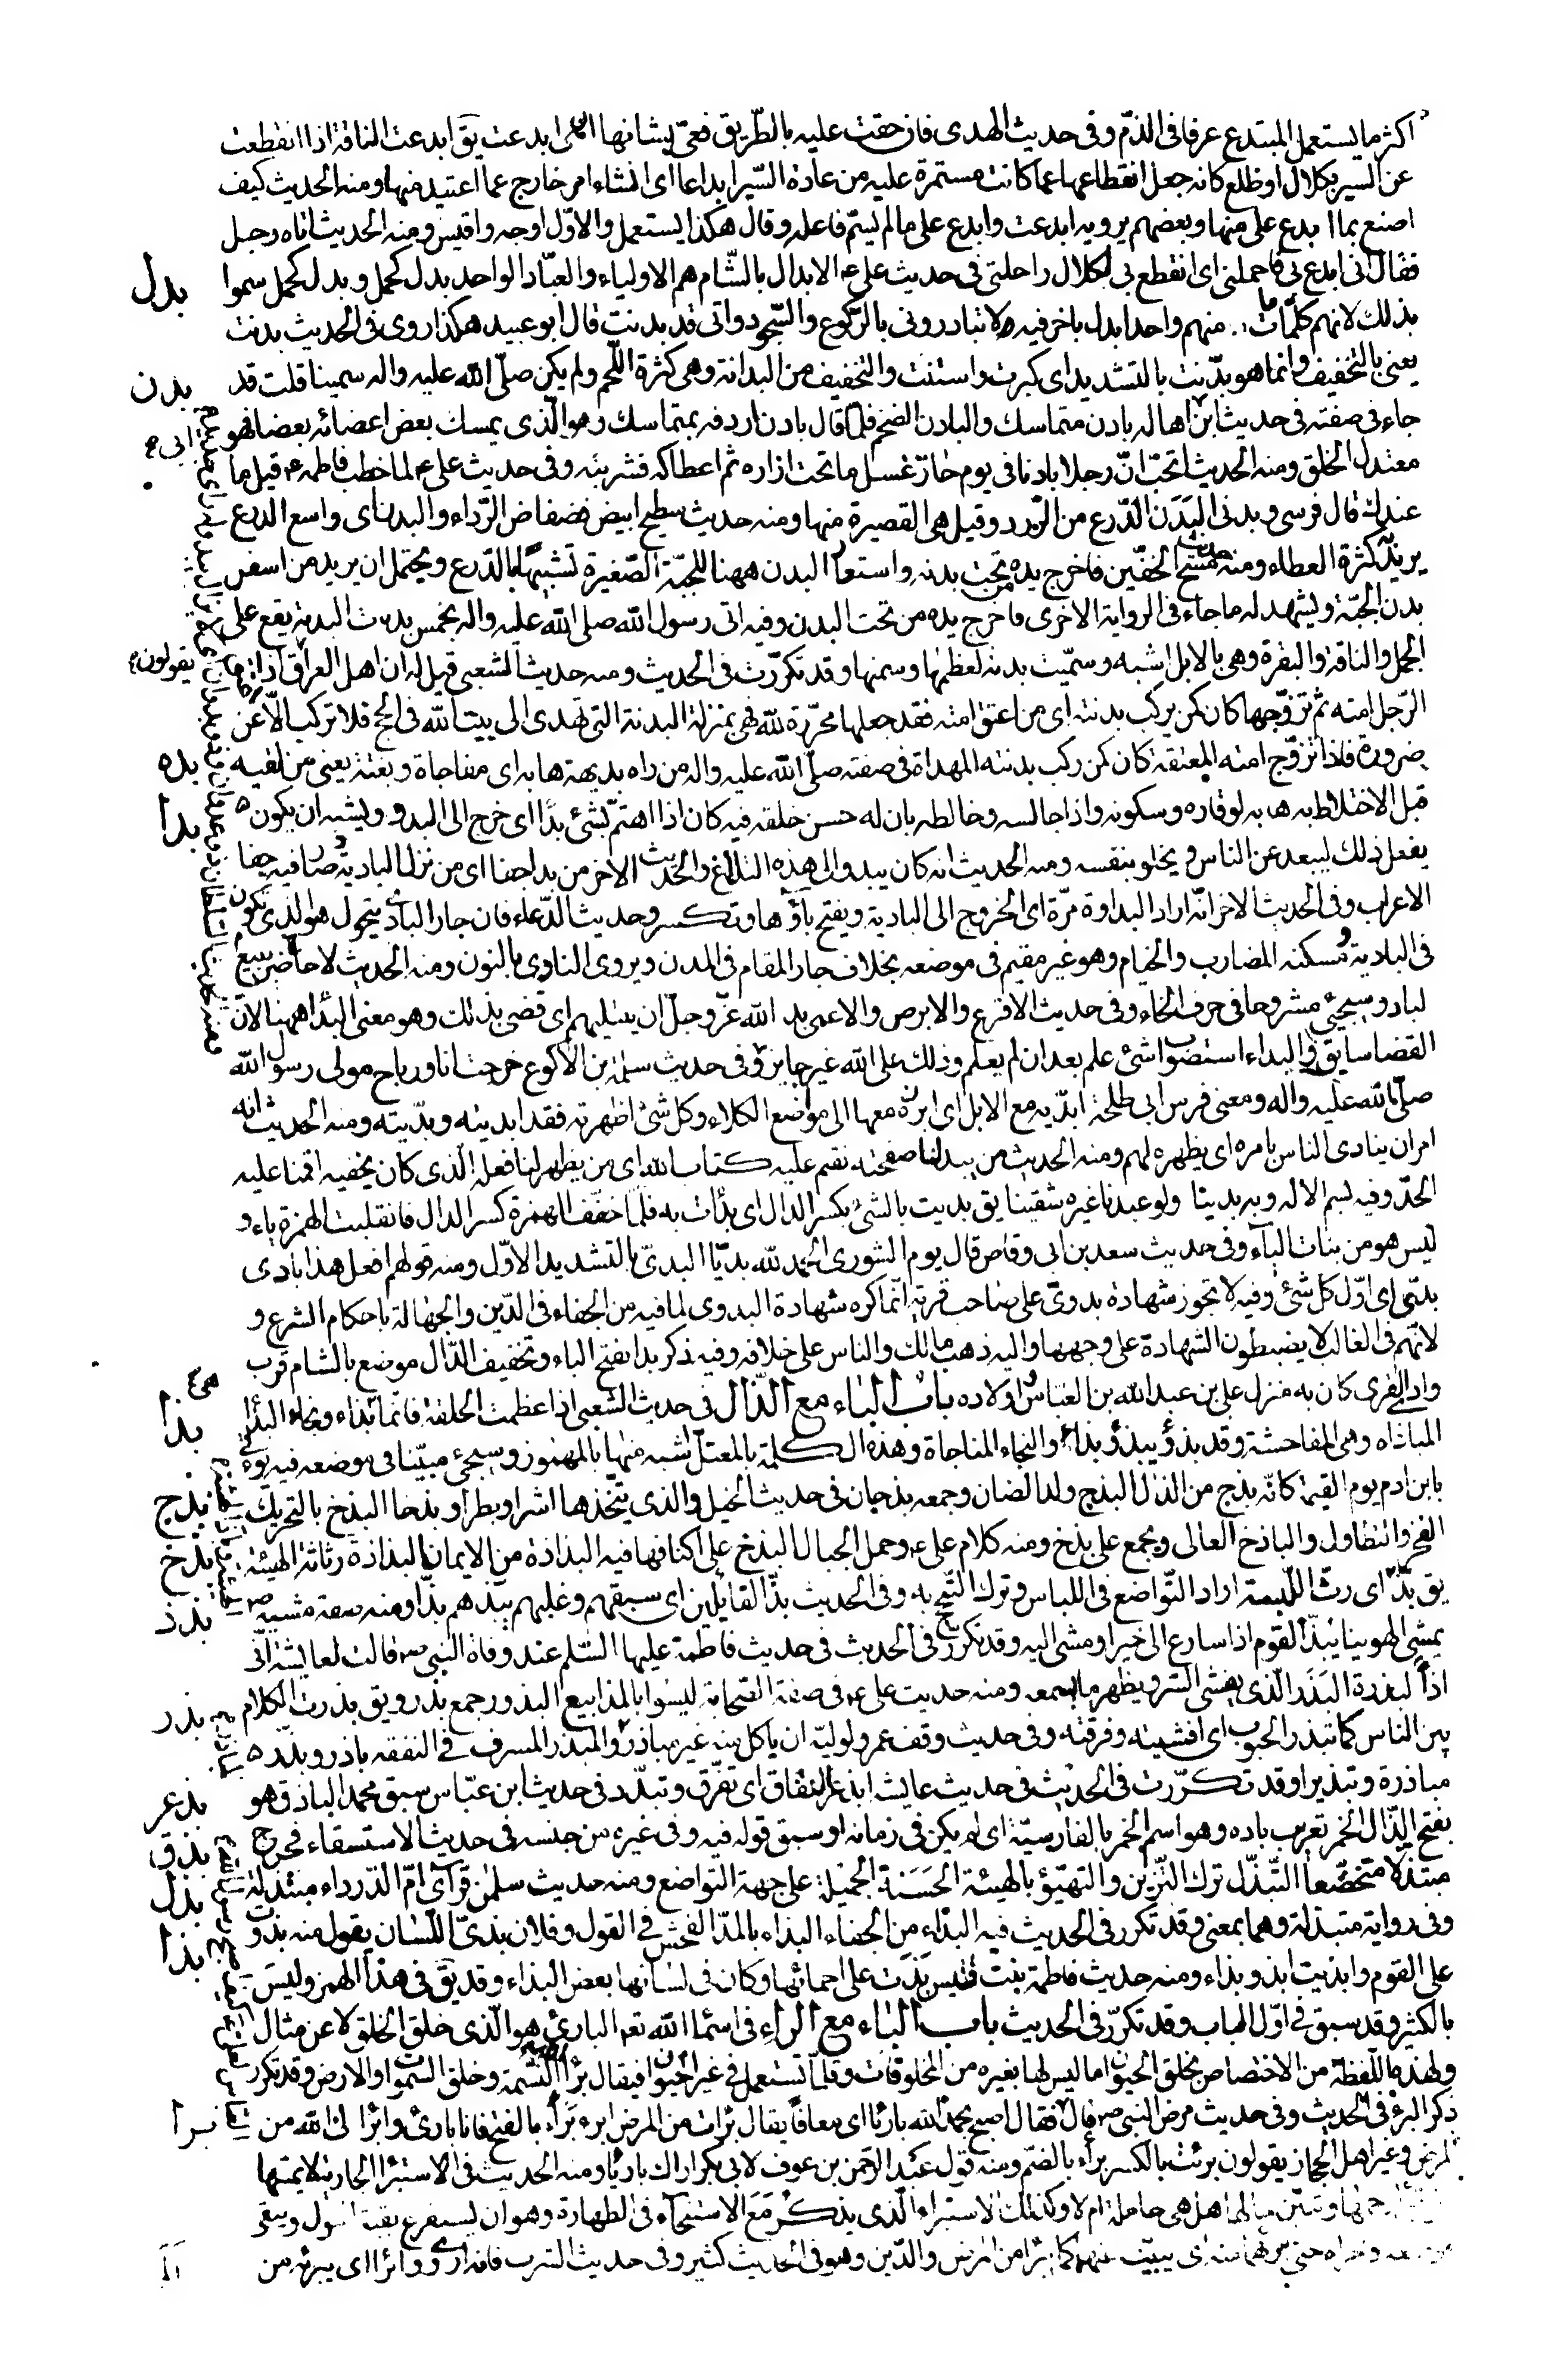 اكثر ما يستعمل المبتدع عرفا فى الذمّ وفى حديث الهدى فازحفت عليه بالطّريق فعىّ بشانها ان هى ابدعت يق ابدعت الناقة اذا انقطعت
عن السير بكلال او ظلع كانه جعل انقطاعها عما كانت مستمرة عليه من عادة السّير ابداعا اى انشاء امر خارج عما اعتيد منها ومنه الحديث كيف
اصنع بما ابدع علىّ منها وبعضهم يرويه ابدعت وابدع على ما لم يسمّ فاعله وقال هكذا يستعمل والاوّل اوجه واقيس ومنه الحديث اتاه رجل
فقال انى ابدع بى فاحملنى اى انقطع بى لكلال راحلتى فى حديث على ع الابدال بالشّام هم الاولياء والعبّاد الواحد بدل كحمل وبدل كجمل سموا
بدل
بذلك لانهم كلّما مات منهم واحد ابدل باخر فيه لا تبادرونى بالرّكوع والسّجود وانى قد بدنت قال ابو عبيد هكذا روى فى الحديث بدنت
يعنى بالتخفيف وانما هو بدّنت بالتشديد اى كبرت واسننت والتخفيف من البدانة وهى كثرة اللّحم ولم يكن صلّى الله عليه واله سمينا قلت قد
بدن
جاء فى صفته فى حديث ابن ابى هاله بادن متماسك والبادن الضخم فلمّا قال بادن اردفه بمتماسك وهو الّذى يمسك بعض اعضائه بعضا فهو
معتدل الخلق ومنه الحديث اتحبّ انّ رجلا بادنا فى يوم حارّ غسل ما تحت ازاره ثم اعطاكه فشربته وفى حديث على ع لما خطب فاطمه ع قيل ما
عندك قال فرسى وبدنى البَدَن الدّرع من الزّرد وقيل هى القصيرة منها ومنه حديث سطيح ابيض فضفاض الرّداء والبدن اى واسع الدرع
يريد كثرة العطاء ومنه حديث مسح الخفّين فاخرج يده من تحت بدنه واستعار البدن ههنا للجبّة الصّغيرة تشبيها بالدّرع ويحتمل ان يريد من اسفل
بدن الجبّة ويشهد له ما جاء فى الرواية الاخرى فاخرج يده من تحت البدن وفيه اتى رسول الله صلى الله عليه واله بخمس بدنات البدنة يقع على
الجمل والناقة والبقرة وهى بالابل اشبه وسمّيت بدنة لعظمها وسمنها وقد تكرّرت فى الحديث ومنه حديث الشعبى قيل له ان اهل العراق يقولون اذا
الرّجل امته ثم تزوّجها كان كمن يركب بدنته اى من اعتق امته فقد جعلها محرّرة لله فهى بمنزلة البدنة التى تهدى الى بيت الله فى الحج فلا تركب الّا عن
ضرورة فاذا تزوّج امته المعتقة كان كمن ركب بدنته المهداة فى صفته صلّى الله عليه واله من راه بديهة هابه اى مفاجاة وبغتة يعنى من لقيه
بده
قبل الاختلاط به هابه لوقاره وسكونه واذا جالسه وخالطه بان له حسن خلقه فيه كان اذا اهتمّ بشئ بدا اى خرج الى البدو ويشبه ان يكون
بدا
يفعل ذلك ليبعد عن الناس ويخلو بنفسه ومنه الحديث انه كان يبدو الى هذه التلاع والحديث الاخر من بدا جفا اى من نزل البادية صار فيه جفا
الاعراب وفى الحديث الاخر انّه اراد البداوة مرّة اى الخروج الى البادية ويفتح باؤها وتكسر وحديث الدّعاء فان جار البادى يتحول هو الذى يكون
فى البادية ومسكنه المضارب والخيام وهو غير مقيم فى موضعه بخلاف جار المقام فى المدن ويروى النادى بالنون ومنه الحديث لا يبيع حاضر
لباد وسيجئ مشروحا فى حرف الحاء وفى حديث الاقرع والابرص والاعمى بدا الله عزّ وجلّ ان يبتليهم اى قضى بذلك وهو معنى البدا ههنا لانّ
القضا سابق والبداء استصواب شئ علم بعد ان لم يعلم وذلك على الله غير جايز وفى حديث سلمة بن الاكوع خرجت انا ورباح مولى رسول الله
صلّى الله عليه واله ومعنى فرس ابى طلحة ابدّيه مع الابل اى ابرزه معها الى موضع الكلاء وكل شئ اظهرته فقد ابديته وبدّيته ومنه الحديث انه
امر ان ينادى الناس بامره اى يظهره لهم ومنه الحديث من يبد لنا صفحته نقم عليه كتاب الله اى من يظهر لنا فعله الّذى كان يخفيه اقمنا عليه
الحدّ وفيه بسم الاله وبه بدينا ولو عبدنا غيره شقينا يق بديت بالشئ بكسر الدال اى بدات به فلمّا خفّف الهمزة كسر الدال فانقلبت الهمزة ياء و
ليس هو من بنات الياء وفى حديث سعد بن ابى وقاص قال يوم الشورى الحمد لله بديّا البدىّ بالتشديد الاوّل ومنه قولهم افعل هذا بادى
بدىّ اى اوّل كل شئ وفيه لا تجوز شهادة بدوىّ على صاحب قرية انّما كره شهادة البدوى لما فيه من الجفاء فى الدّين والجهالة باحكام الشرع و
لانّهم فى الغالب لا يضبطون الشهادة على وجهها واليه ذهب مالك والناس على خلافه وفيه ذكر بدا بفتح الباء وتخفيف الدّال موضع بالشام قرب
وادى القرى كان به منزل على بن عبد الله بن العباس واولاده باب الباء مع الذّال فى حديث الشعبى اذا عظمت الخلقة فانما هى بذاء ونجاء البذا
بذا
المباذاه وهى المفاحشة وقد بذؤ يبذؤ بذاء والنجاء المناجاة وهذه الكلمة بالمعتل اشبه منها بالمهموز وسيجئ مبيّنا فى موضعه فيه يؤتى
بابن ادم يوم القيمة كانّه بذج من الذل البذج ولد الضان وجمعه بذجان فى حديث الخيل والذى يتّخذها اشرا وبطرا وبذخا البذخ بالتحريك
بذج
الفخر والتطاول والباذخ العالى ويجمع على بذخ ومنه كلام على ع وحمل الجبال البذخ على اكتافها فيه البذاذة من الايمان البذاذة رثاثة الهيئة
بذخ
يق بذّ اى رثّ اللّبسة اراد التّواضع فى اللباس وترك التّبجح به وفى الحديث بذّ القايلين اى سبقهم وغلبهم يبذهم بذّا ومنه صفة مشيه
بذذ
يمشى الهوينا يبذّ القوم اذا سارع الى خير او مشى اليه وقد تكرر فى الحديث فى حديث فاطمة عليها السّلم عند وفاة النبى ص قالت لعايشة انّى
اذاً لبذرة البَذَر الّذى يفشى السّر ويظهر ما يسمعه ومنه حديث على ع فى صفة الصّحابة ليسوا بالمذاييع البذر جمع بذر ويق بذرت الكلام
بذر
بين الناس كما تبذر الحبوب اى افشيته وفرقته وفى حديث وقف عمر ولوليّه ان ياكل منه غير مباذر والمبذر المسرف فى النفقه باذر وبذّر
مباذرة وتبذيرا وقد تكرّرت فى الحديث فى حديث عايشه ابذعرّ النفاق اى تفرّق وتبدّد فى حديث ابن عبّاس سبق محمد الباذق وهو
بذعر
بفتح الذّال الخمر تعريب باده وهو اسم الخمر بالفارسيّة اى لم يكن فى زمانه او سبق قوله فيه وفى غيره من جنسه فى حديث الاستسقاء فخرج
بذق
متبذّلا متخضّعا التّبذّل ترك التّزيّن والتهيّؤ بالهيئة الحَسَنة الجميلة على جهة التواضع ومنه حديث سلمن فراى امّ الدّرداء مبتذلة
بذل
وفى رواية متبذلة وهما بمعنى وقد تكرر فى الحديث فيه البذاء من الجفاء البذاء بالمدّ الفحش فى القول وفلان بذىّ اللّسان يقول منه بذوت
بذا
على القوم وابذيت ابذو بذاء ومنه حديث فاطمة بنت قيس بَذَت على احمائها وكان فى لسانها بعض البذاء وقد يق فى هذا الهمز وليس
بالكثير وقد سبق فى اوّل الباب وقد تكرّر فى الحديث باب الباء مع الراء فى اسماء الله تعم البارئ هو الّذى خلق الخلق لا عن مثال
ولهذه اللّفظة من الاختصاص بخلق الحيوان ما ليس لها بغيره من المخلوقات وقلّما تستعمل فى غير الحيوان فيقال برا الله النسمة وخلق السموات والارض وقد تكرر
ذكر البرء فى الحديث وفى حديث مرض النبى ص قال فقال اصبح بحمد الله بارئا اى معافا يقال برات من المرض ابرء بَرأء بالفتح فانا بارئ وابرانى الله من
برا
المرض وغير اهل الحجاز يقولون برئت بالكسر براء بالضّم ومنه قول عبد الرحمن بن عوف لابى بكر اراك بارئا ومنه الحديث فى الاستبرا الجارية لا يمسّها
رحمها وتبيّن حالها هل هى حاملة ام لا وكذلك الاستبراء الّذى يذكر مع الاستنجاء فى الطهارة وهو ان يستفرغ بقية البول وينقى
حتى يبرئهما منه اى يبينه عنهما كما يبرا من المرض والدّين وهو فى الحديث كثير وفى حديث الشرب فانه اروى وابرا اى يبرئه من